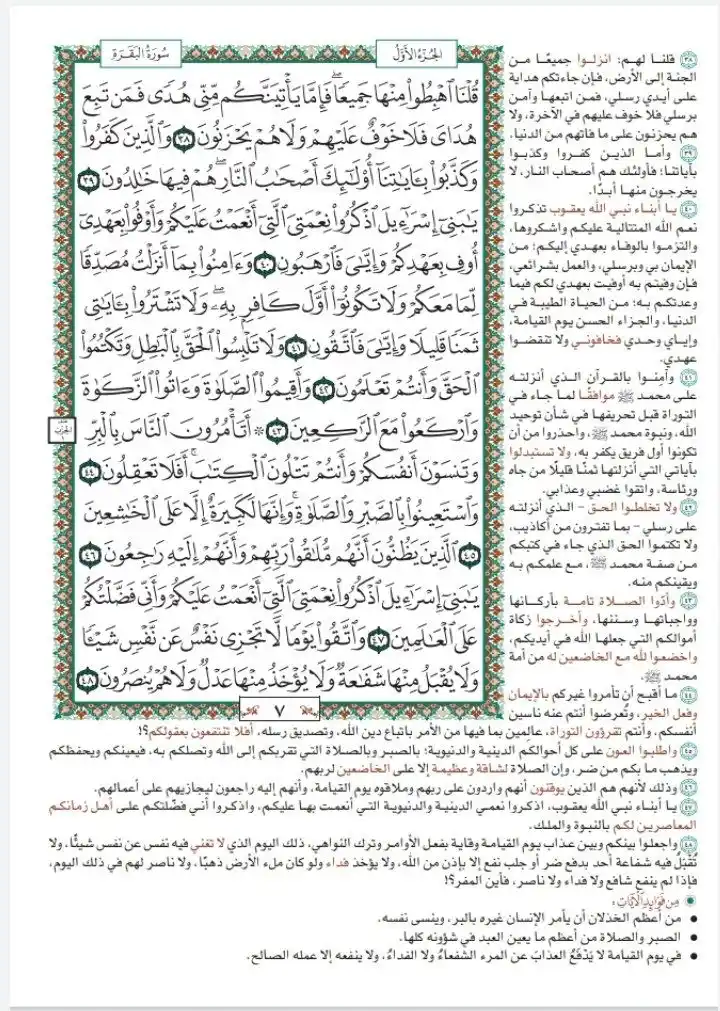 الجزء الأول
سورة البقرة
قُلْنَا ٱهْبِطُوا۟ مِنْهَا جَمِيعًا ۖ فَإِمَّا يَأْتِيَنَّكُم مِّنِّى هُدًى فَمَن تَبِعَ
هُدَاىَ فَلَا خَوْفٌ عَلَيْهِمْ وَلَا هُمْ يَحْزَنُونَ ٣٨ وَٱلَّذِينَ كَفَرُوا۟
وَكَذَّبُوا۟ بِـَٔايَـٰتِنَآ أُو۟لَـٰٓئِكَ أَصْحَـٰبُ ٱلنَّارِ ۖ هُمْ فِيهَا خَـٰلِدُونَ ٣٩
يَـٰبَنِىٓ إِسْرَٰٓءِيلَ ٱذْكُرُوا۟ نِعْمَتِىَ ٱلَّتِىٓ أَنْعَمْتُ عَلَيْكُمْ وَأَوْفُوا۟ بِعَهْدِىٓ
أُوفِ بِعَهْدِكُمْ وَإِيَّـٰىَ فَٱرْهَبُونِ ٤٠ وَءَامِنُوا۟ بِمَآ أَنزَلْتُ مُصَدِّقًا
لِّمَا مَعَكُمْ وَلَا تَكُونُوٓا۟ أَوَّلَ كَافِرٍۭ بِهِۦ ۖ وَلَا تَشْتَرُوا۟ بِـَٔايَـٰتِى
ثَمَنًا قَلِيلًا وَإِيَّـٰىَ فَٱتَّقُونِ ٤١ وَلَا تَلْبِسُوا۟ ٱلْحَقَّ بِٱلْبَـٰطِلِ وَتَكْتُمُوا۟
ٱلْحَقَّ وَأَنتُمْ تَعْلَمُونَ ٤٢ وَأَقِيمُوا۟ ٱلصَّلَوٰةَ وَءَاتُوا۟ ٱلزَّكَوٰةَ
وَٱرْكَعُوا۟ مَعَ ٱلرَّٰكِعِينَ ٤٣ ۞ أَتَأْمُرُونَ ٱلنَّاسَ بِٱلْبِرِّ
وَتَنسَوْنَ أَنفُسَكُمْ وَأَنتُمْ تَتْلُونَ ٱلْكِتَـٰبَ ۚ أَفَلَا تَعْقِلُونَ ٤٤
وَٱسْتَعِينُوا۟ بِٱلصَّبْرِ وَٱلصَّلَوٰةِ ۚ وَإِنَّهَا لَكَبِيرَةٌ إِلَّا عَلَى ٱلْخَـٰشِعِينَ
٤٥ ٱلَّذِينَ يَظُنُّونَ أَنَّهُم مُّلَـٰقُوا۟ رَبِّهِمْ وَأَنَّهُمْ إِلَيْهِ رَٰجِعُونَ ٤٦
يَـٰبَنِىٓ إِسْرَٰٓءِيلَ ٱذْكُرُوا۟ نِعْمَتِىَ ٱلَّتِىٓ أَنْعَمْتُ عَلَيْكُمْ وَأَنِّى فَضَّلْتُكُمْ
عَلَى ٱلْعَـٰلَمِينَ ٤٧ وَٱتَّقُوا۟ يَوْمًا لَّا تَجْزِى نَفْسٌ عَن نَّفْسٍ شَيْـًٔا
وَلَا يُقْبَلُ مِنْهَا شَفَـٰعَةٌ وَلَا يُؤْخَذُ مِنْهَا عَدْلٌ وَلَا هُمْ يُنصَرُونَ ٤٨
٧
٣٨ قلنا لهم: انزلوا جميعًا من
الجنة إلى الأرض، فإن جاءتكم هداية
على أيدي رسلي، فمن اتبعها وآمن
برسلي فلا خوف عليهم في الآخرة، ولا
هم يحزنون على ما فاتهم من الدنيا.
٣٩ وأما الذين كفروا وكذبوا
بآياتنا؛ فأولئك هم أصحاب النار، لا
يخرجون منها أبدًا.
٤٠ يا أبناء نبي الله يعقوب تذكروا
نعم الله المتتالية عليكم واشكروها،
والتزموا بالوفاء بعهدي إليكم؛ من
الإيمان بي وبرسلي، والعمل بشرائعي،
فإن وفيتم به أوفيت بعهدي لكم فيما
وعدتكم به؛ من الحياة الطيبة في
الدنيا، والجزاء الحسن يوم القيامة،
وإياي وحدي فخافوني ولا تنقضوا
عهدي.
٤١ وآمنوا بالقرآن الذي أنزلته
على محمد ﷺ موافقًا لما جاء في
التوراة قبل تحريفها في شأن توحيد
الله، ونبوة محمد ﷺ، واحذروا من أن
تكونوا أول فريق يكفر به، ولا تستبدلوا
بآياتي التي أنزلتها ثمنًا قليلًا من جاه
ورئاسة، واتقوا غضبي وعذابي.
٤٢ ولا تخلطوا الحق - الذي أنزلته
على رسلي - بما تفترون من أكاذيب،
ولا تكتموا الحق الذي جاء في كتبكم
من صفة محمد ﷺ، مع علمكم به
ويقينكم منه.
٤٣ وأدّوا الصلاة تامة بأركانها
وواجباتها وسننها، وأخرجوا زكاة
أموالكم التي جعلها الله في أيديكم،
واخضعوا لله مع الخاضعين له من أمة
محمد ﷺ.
٤٤ ما أقبح أن تأمروا غيركم بالإيمان
وفعل الخير، وتُعرضوا أنتم عنه ناسين
أنفسكم، وأنتم تقرؤون التوراة، عالِمين بما فيها من الأمر باتباع دين الله، وتصديق رسله، أفلا تنتفعون بعقولكم؟!
٤٥ واطلبوا العون على كل أحوالكم الدينية والدنيوية؛ بالصبر وبالصلاة التي تقربكم إلى الله وتصلكم به، فيعينكم ويحفظكم
ويذهب ما بكم من ضر، وإن الصلاة لشاقة وعظيمة إلا على الخاضعين لربهم.
٤٦ وذلك لأنهم هم الذين يوقنون أنهم واردون على ربهم وملاقوه يوم القيامة، وأنهم إليه راجعون ليجازيهم على أعمالهم.
٤٧ يا أبناء نبي الله يعقوب، اذكروا نعمي الدينية والدنيوية التي أنعمت بها عليكم، واذكروا أني فضّلتكم على أهل زمانكم
المعاصرين لكم بالنبوة والملك.
٤٨ واجعلوا بينكم وبين عذاب يوم القيامة وقاية بفعل الأوامر وترك النواهي، ذلك اليوم الذي لا تغني فيه نفس عن نفس شيئًا، ولا
تُقْبَلُ فيه شفاعة أحد بدفع ضر أو جلب نفع إلا بإذن من الله، ولا يؤخذ فداء ولو كان ملء الأرض ذهبًا، ولا ناصر لهم في ذلك اليوم،
فإذا لم ينفع شافع ولا فداء ولا ناصر، فأين المفر؟!
من فوائد الآيات:
• من أعظم الخذلان أن يأمر الإنسان غيره بالبر، وينسى نفسه.
• الصبر والصلاة من أعظم ما يعين العبد في شؤونه كلها.
• في يوم القيامة لا يَدْفَعُ العذابَ عن المرء الشفعاءُ ولا الفداءُ، ولا ينفعه إلا عمله الصالح.